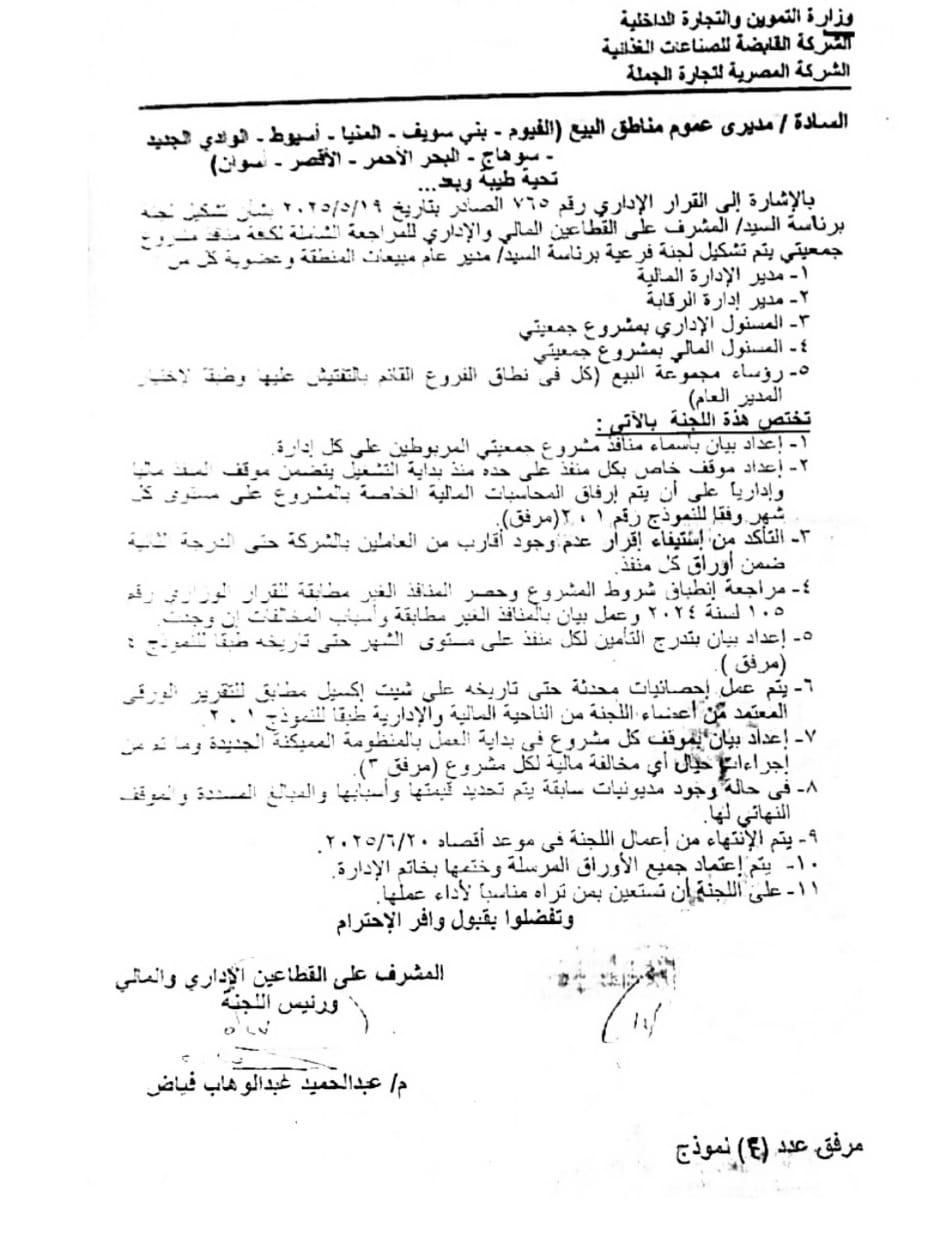 وزارة التموين والتجارة الداخلية
الشركة القابضة للصناعات الغذائية
الشركة المصرية لتجارة الجملة
السادة / مديرى عموم مناطق البيع (الفيوم - بني سويف - المنيا - أسيوط - الوادي الجديد
- سوهاج - البحر الأحمر - الأقصر - أسوان)
تحية طيبة وبعد...
بالإشارة إلى القرار الإداري رقم ٧٦٥ الصادر بتاريخ ٢٠٢٥/٥/١٩ بشأن تشكيل لجنة
برئاسة السيد/ المشرف على القطاعين المالي والإداري للمراجعة الشاملة لكافة منافذ مشروع
جمعيتي يتم تشكيل لجنة فرعية برئاسة السيد/ مدير عام مبيعات المنطقة وعضوية كل من
١- مدير الإدارة المالية
٢- مدير إدارة الرقابة
٣- المسئول الإداري بمشروع جمعيتي
٤- المسئول المالي بمشروع جمعيتي
٥- رؤساء مجموعة البيع (كل فى نطاق الفروع القائم بالتفتيش عليها وطبقا لاختيار
المدير العام)
تختص هذة اللجنة بالآتى :
١- إعداد بيان بأسماء منافذ مشروع جمعيتي المربوطين على كل إدارة.
٢- إعداد موقف خاص بكل منفذ على حده منذ بداية التشغيل يتضمن موقف المنفذ ماليا
وإدارياً على أن يتم إرفاق المحاسبات المالية الخاصة بالمشروع على مستوى كل
شهر وفقا للنموذج رقم ١ ، ٢(مرفق).
٣- التأكد من إستيفاء إقرار عدم وجود أقارب من العاملين بالشركة حتى الدرجة الثانية
ضمن أوراق كل منفذ.
٤- مراجعة إنطباق شروط المشروع وحصر المنافذ الغير مطابقة للقرار الوزاري رقم
١٠٥ لسنة ٢٠٢٤ وعمل بيان بالمنافذ الغير مطابقة وأسباب المخالفات إن وجدت.
٥- إعداد بيان بتدرج التأمين لكل منفذ على مستوى الشهر حتى تاريخه طبقا للنموذج ٤
(مرفق ).
٦- يتم عمل إحصائيات محدثة حتى تاريخه على شيت إكسيل مطابق للتقرير الورقى
المعتمد من أعضاء اللجنة من الناحية المالية والإدارية طبقا للنموذج ١ ، ٢.
٧- إعداد بيان بموقف كل مشروع فى بداية العمل بالمنظومة المميكنة الجديدة وما تم من
إجراءات حيال أي مخالفة مالية لكل مشروع (مرفق ٣).
٨- فى حالة وجود مديونيات سابقة يتم تحديد قيمتها وأسبابها والمبالغ المسددة والموقف
النهائي لها.
٩- يتم الإنتهاء من أعمال اللجنة فى موعد أقصاه ٢٠٢٥/٦/٢٠.
١٠- يتم إعتماد جميع الأوراق المرسلة وختمها بخاتم الإدارة.
١١- على اللجنة أن تستعين بمن تراه مناسباً لأداء عملها.
وتفضلوا بقبول وافر الإحترام
المشرف على القطاعين الإداري والمالي
ورئيس اللجنة
م/ عبدالحميد عبدالوهاب فياض
مرفق عدد (٤) نموذج